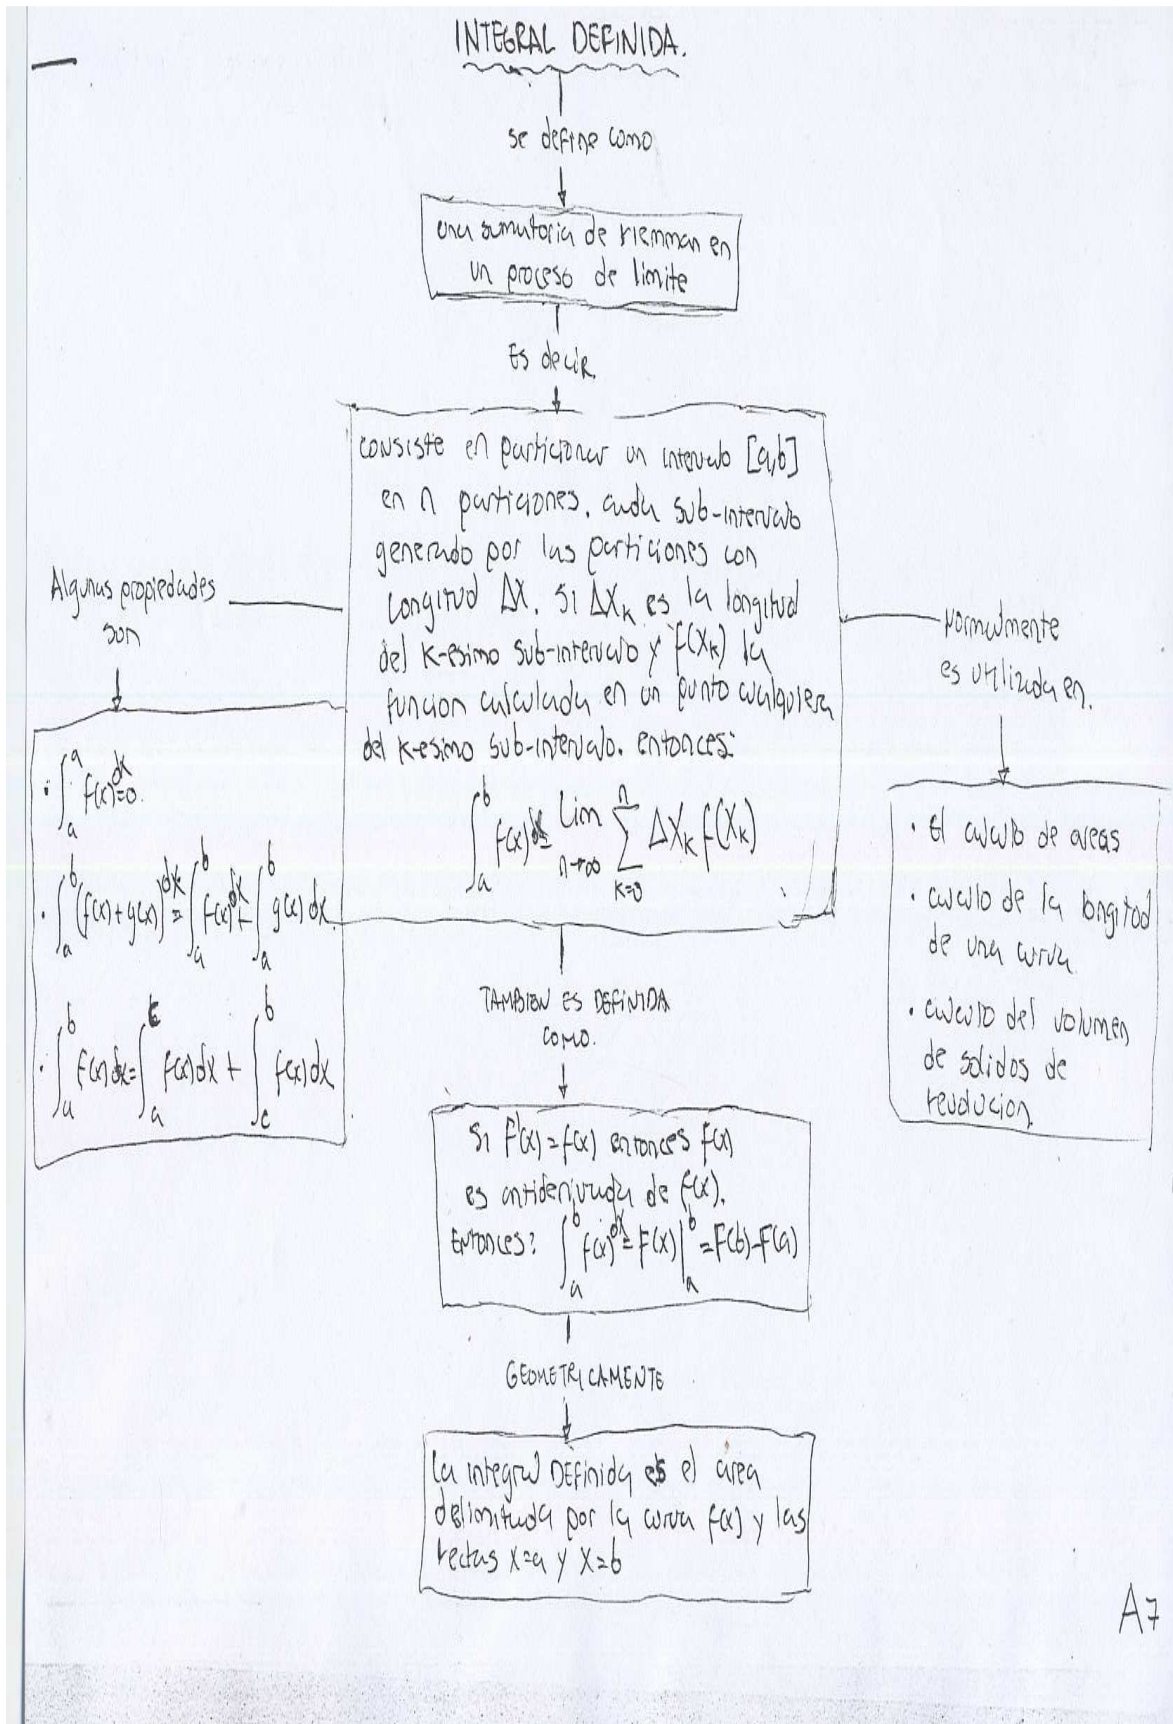 INTEGRAL DEFINIDA.
se define como
una sumatoria de riemman en
un proceso de limite
Es decir.
consiste en particionar un intervalo [a,b]
en n particiones. cada sub-intervalo
generado por las particiones con
longitud Δx. Si Δx_k es la longitud
del k-esimo sub-intervalo y f(x_k) la
funcion calculada en un punto cualquiera
del k-esimo sub-intervalo. entonces:
∫_a^b f(x)dx = Lim_{n→∞} ∑_{k=0}^n Δx_k f(x_k)
Algunas propiedades
son
· ∫_a^a f(x)dx=0.
· ∫_a^b (f(x)+g(x))dx = ∫_a^b f(x)dx + ∫_a^b g(x)dx
· ∫_a^b f(x)dx = ∫_a^c f(x)dx + ∫_c^b f(x)dx
normalmente
es utilizada en.
· El calculo de areas
· calculo de la longitud
de una curva
· calculo del volumen
de solidos de
revolucion.
TAMBIEN ES DEFINIDA
COMO.
Si F'(x)=f(x) entonces F(x)
es antiderivada de f(x).
Entonces: ∫_a^b f(x)dx = F(x)|_a^b = F(b)-F(a)
GEOMETRICAMENTE
La integral DEFinida es el área
delimitada por la curva f(x) y las
rectas x=a y x=b
A7